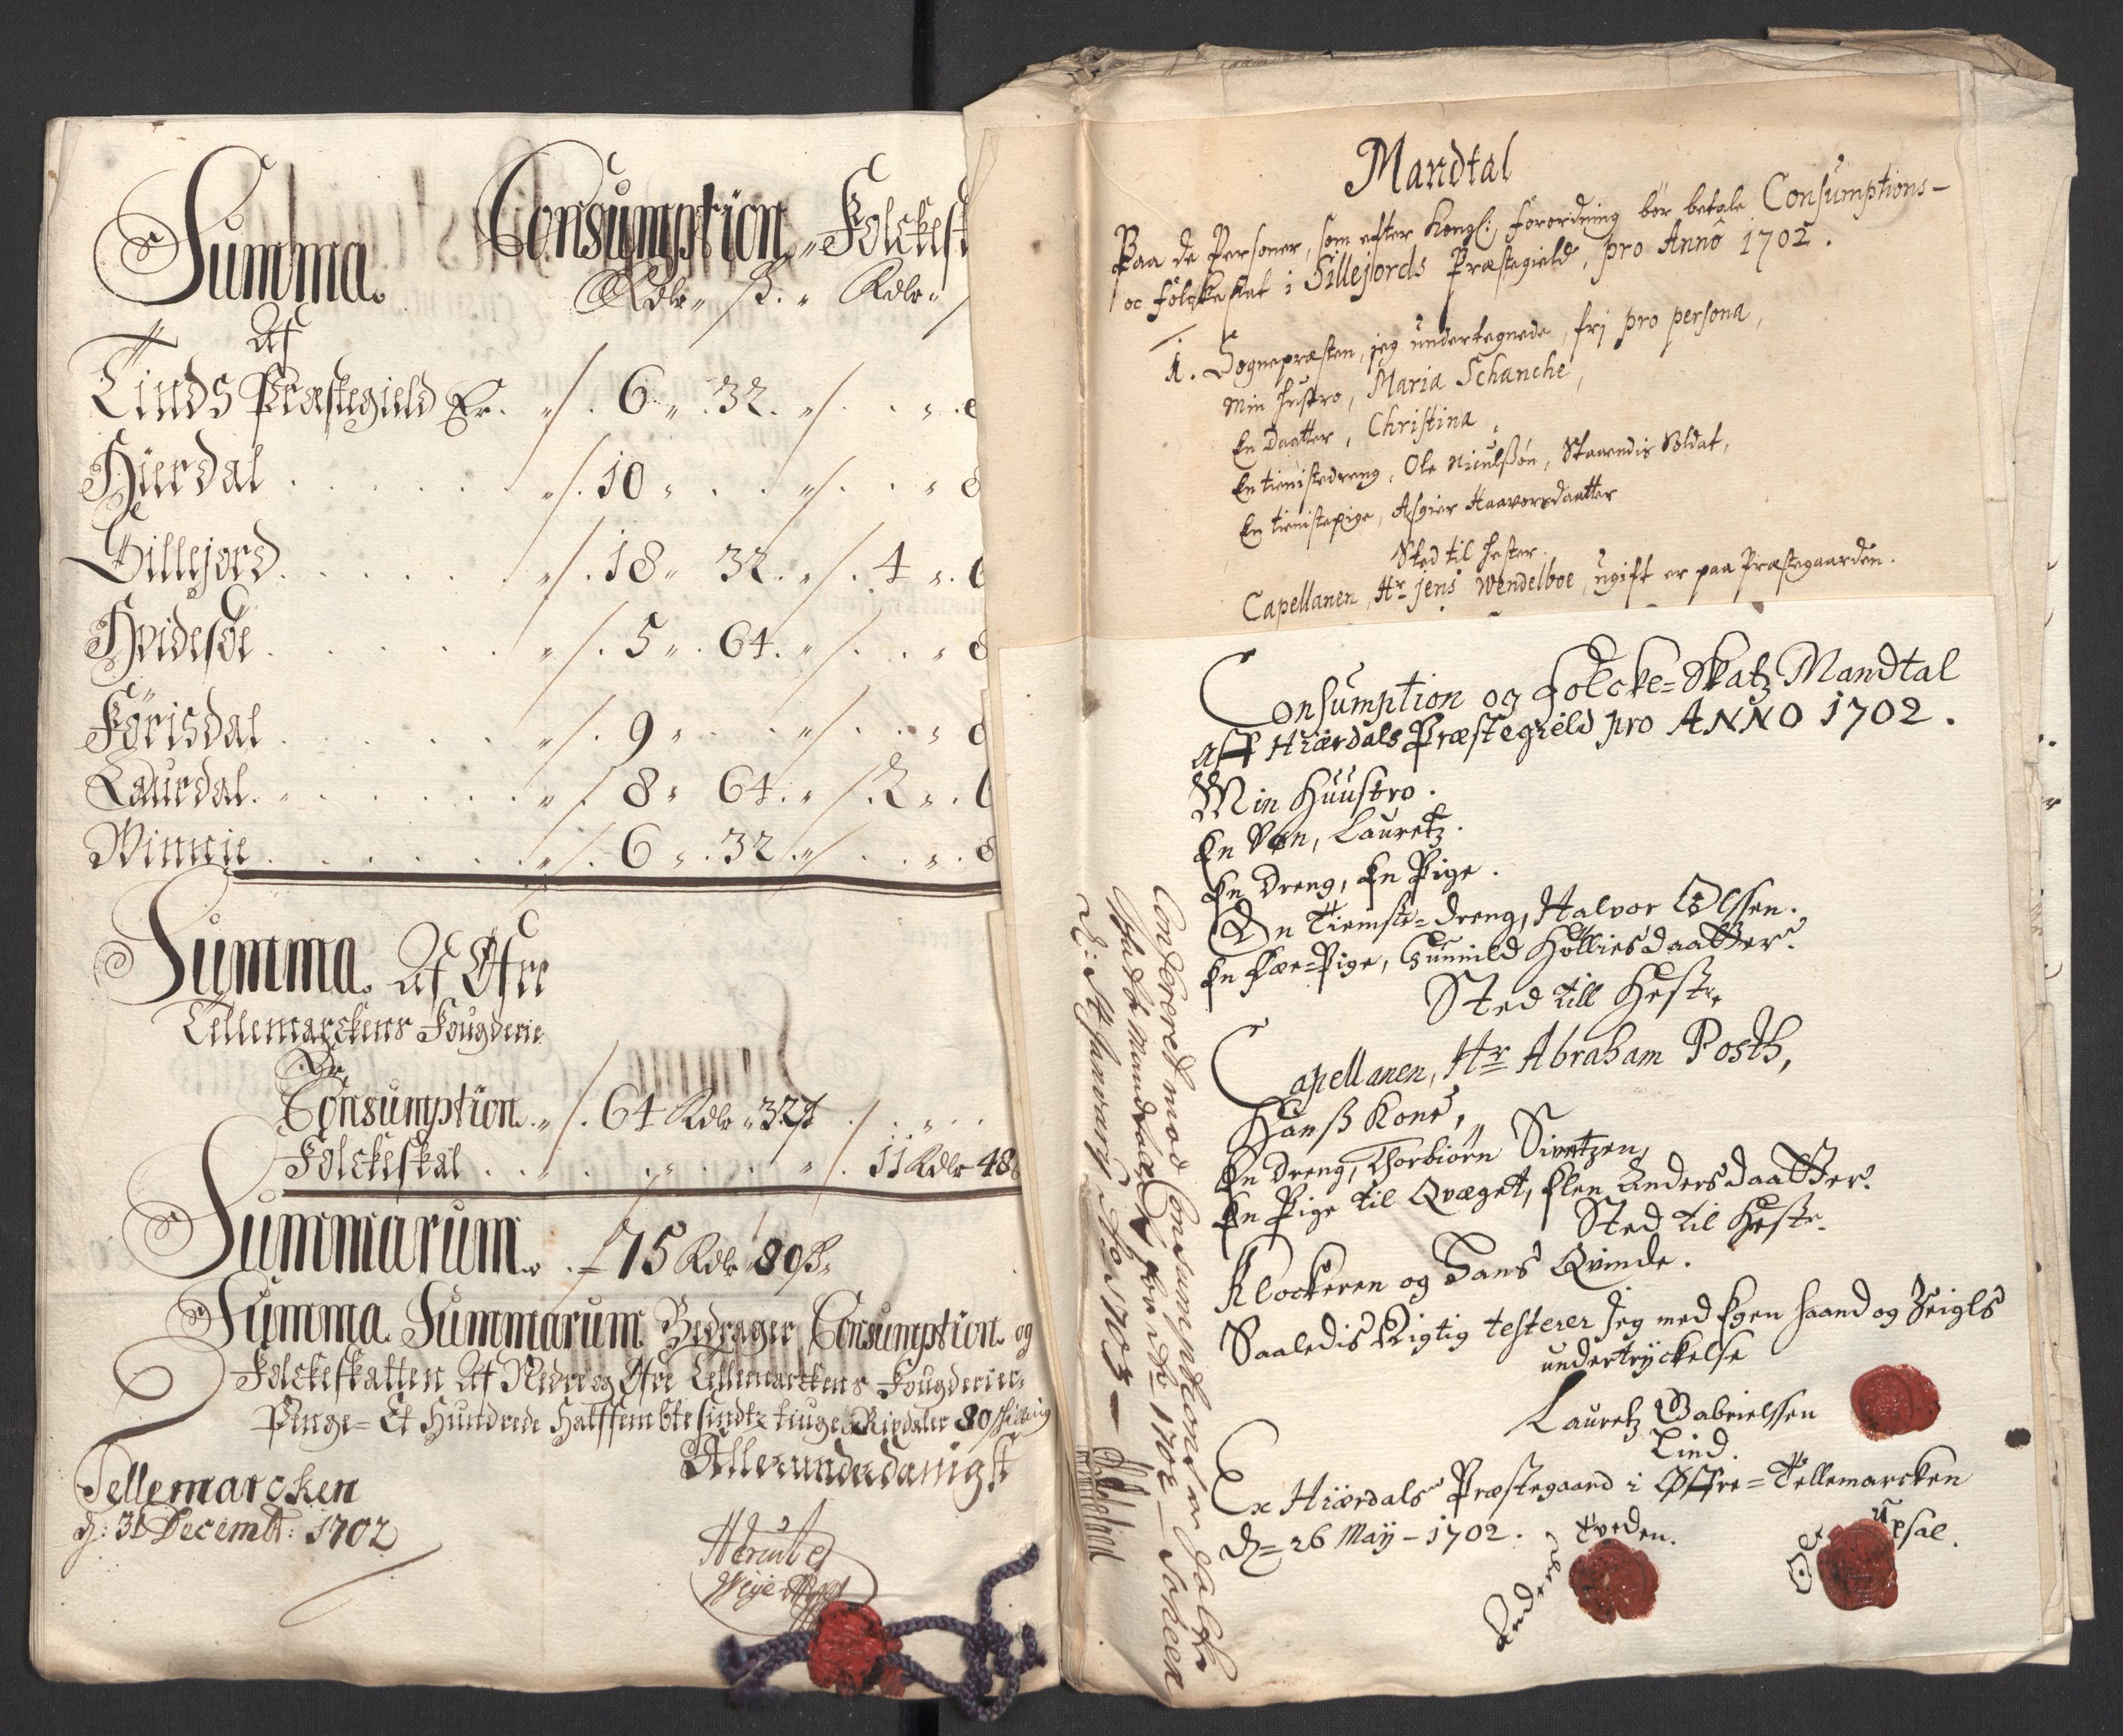 Summa. Consumption „ Folckesk
Rdlr „ ß. „ Rdlr „
Af
Tinds Præstegield Er. „/. 6 „ 32. „/. . „ .
Hierdal . . . . . „/. 10 „ . . „/. . „
Sillejord. . . . . „/. 18 „ 32. „/. 4 „ .
Hvidesøe . . . . . „/. 5 „ 64. „/. . „
Førisdal . . . . . „/. 9 „ . . „/. . „
Laurdal. . . . . . „/. 8 „ 64. „/. 2 „ .
Winneie . . . . . „/. 6 „ 32. „/. . „ .
Summa. Af Øfre
Tellemarckens Fougderie
Er
Consumption. „/. 64 Rdlr „ 32 ß ./. „ . .
Folckeskat . . „ . . „ . . „/. 11 Rdlr 48
Summarum. . = 75 Rdlr 80 ß.
Summa Summarum Bedrager Consumption og
Folckeskatten Af Nedre og Øfre Tellemarckens Fougderier,
Penge = Et Hundrede Halffembtesindtztiuge Rixdaler 80 skilling
Allerunderdanigst
Tellemarcken
d: 31 Decembr: 1702
Mandtal
Paa de Personer, som efter Kongl: forordning bör betale Consumptions-
oc folcke skat i Sillejords Præstegield, pro Anno 1702.
1. Sognepræsten, jeg undertegnede, fri pro persona,
Min hustro, Maria Schanche,
En Daatter, Christina,
En tienistedreng, Ole Niculßön, Staaendis Soldat,
En tienistepige, Asgier Haavorsdaatter
Sted til hester.
Capellanen, Hr Jens Wendelboe, ugift er paa Præstegaarden.
Consumption og Folcke=Skatz Mandtal
aff Hiærdals Præstegield pro ANNO 1702.
Min Huustro.
En Søn, Lauretz.
En Dreng, En Pige.
En Tieniste=Dreng, Halvor Olssen.
En Fæe=Pige, Gunnild HølliesdaatTer.
Sted till Hestr.
Capellanen, Hr Abraham Posth,
Hanß Kone,
En Dreng, Thorbiørn Sivertzen,
En Pige til Qvæget, Elen AndersdaatTer.
Sted til Hestr.
Klockeren og Hans Qvinde.
Saaledis Rigtig testerer Jeg med Egen haand og Zeigls
undertrÿckelse
Lauretz Gabrielssen
Lind.
Ex Hiærdals Præstegaard i Øffre=Tellemarcken
D= 26 Maÿ - 1702.
Anders Tveden.
Ole Upsal.
Confereret mod Consumptions og folcke
schatte mandtalet for Ao 1702 -
d: Ao 1703 -